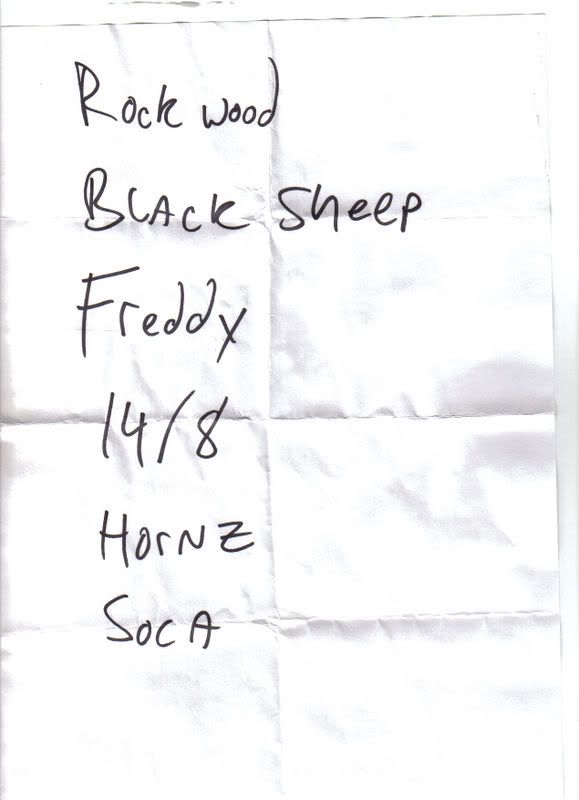 Rockwood
BLACK Sheep
Freddy
14/8
HorNZ
SOCA